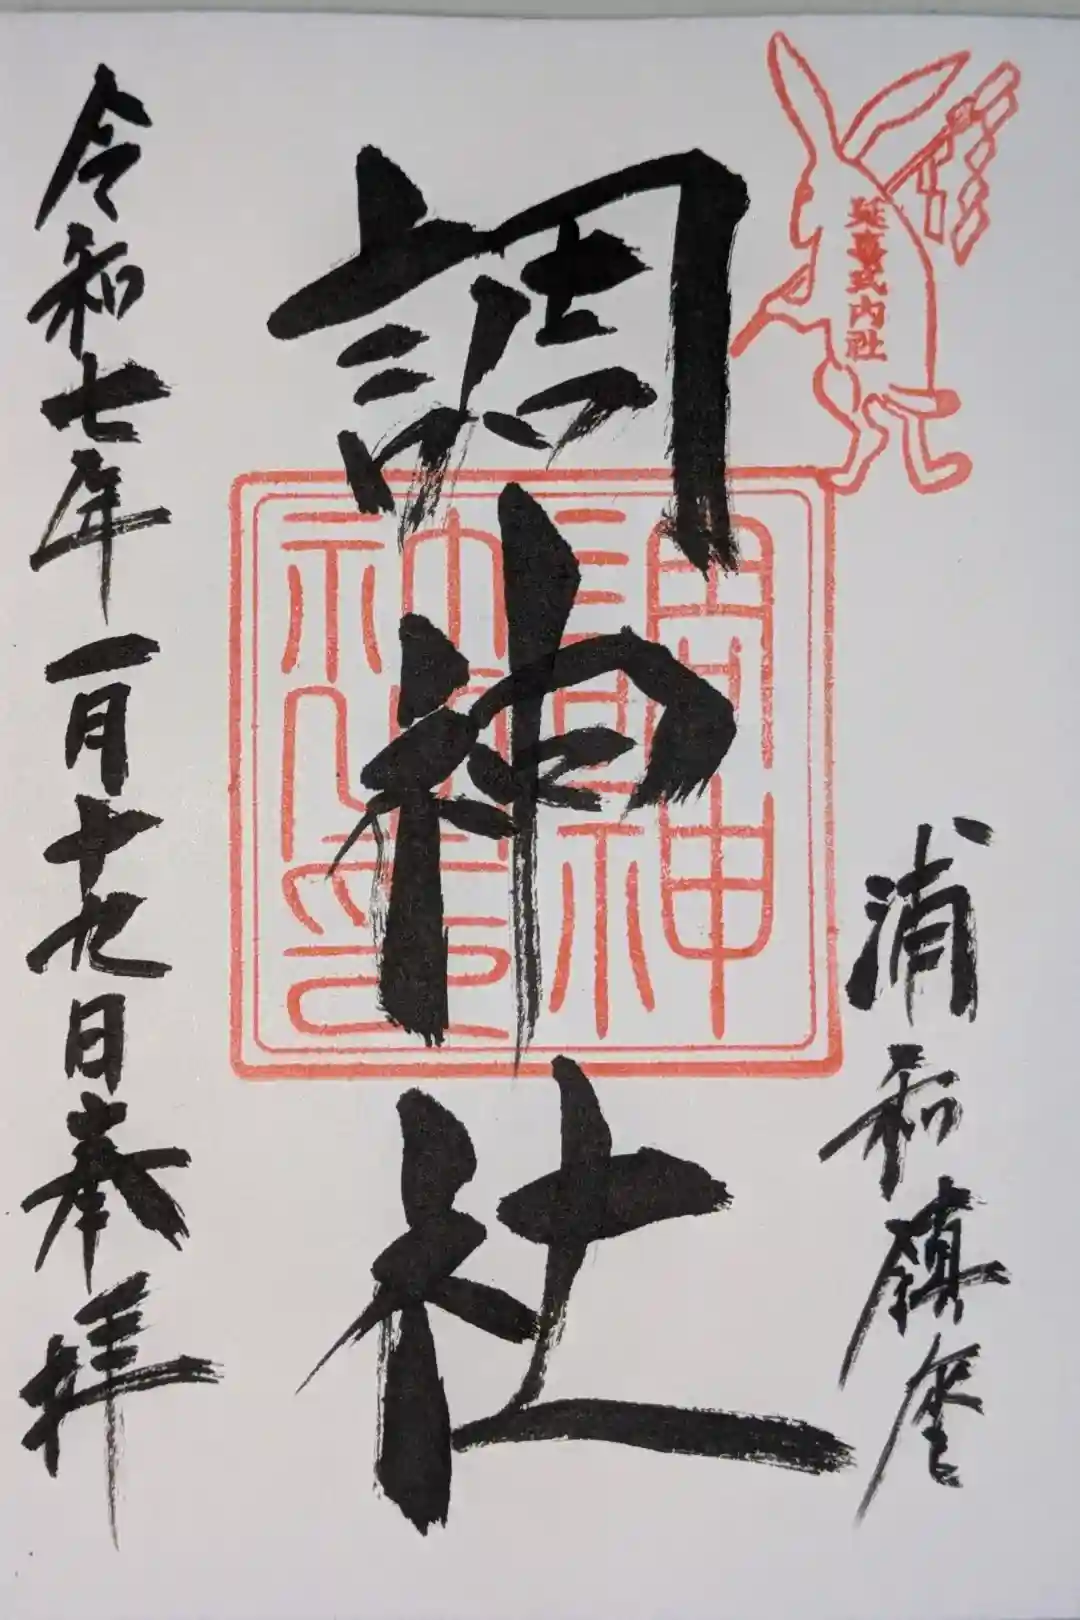 延喜式内社
浦和鎮座
調神社
調神
社印
令和七年一月十九日奉拝